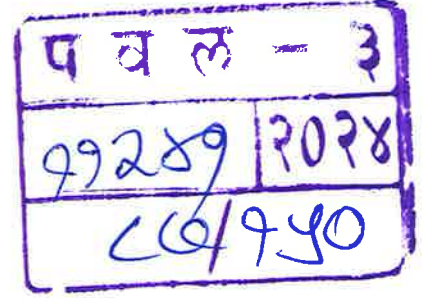 प व ल - ३
११२४१ २०२४
८७/१५०